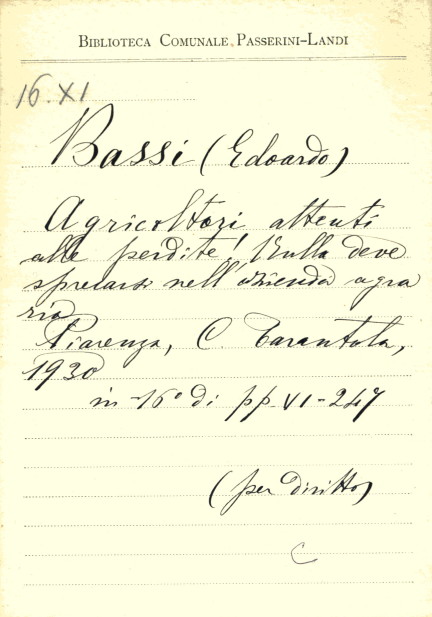 BIBLIOTECA COMUNALE PASSERINI-LANDI
16.XI
Bassi (Edoardo)
Agricoltori attenti
alle perdite! Nulla deve
sprecarsi nell'azienda agra
ria
Piacenza, C. Tarantola,
1930
in-16° di pp. VI-247
(per diritto)
C